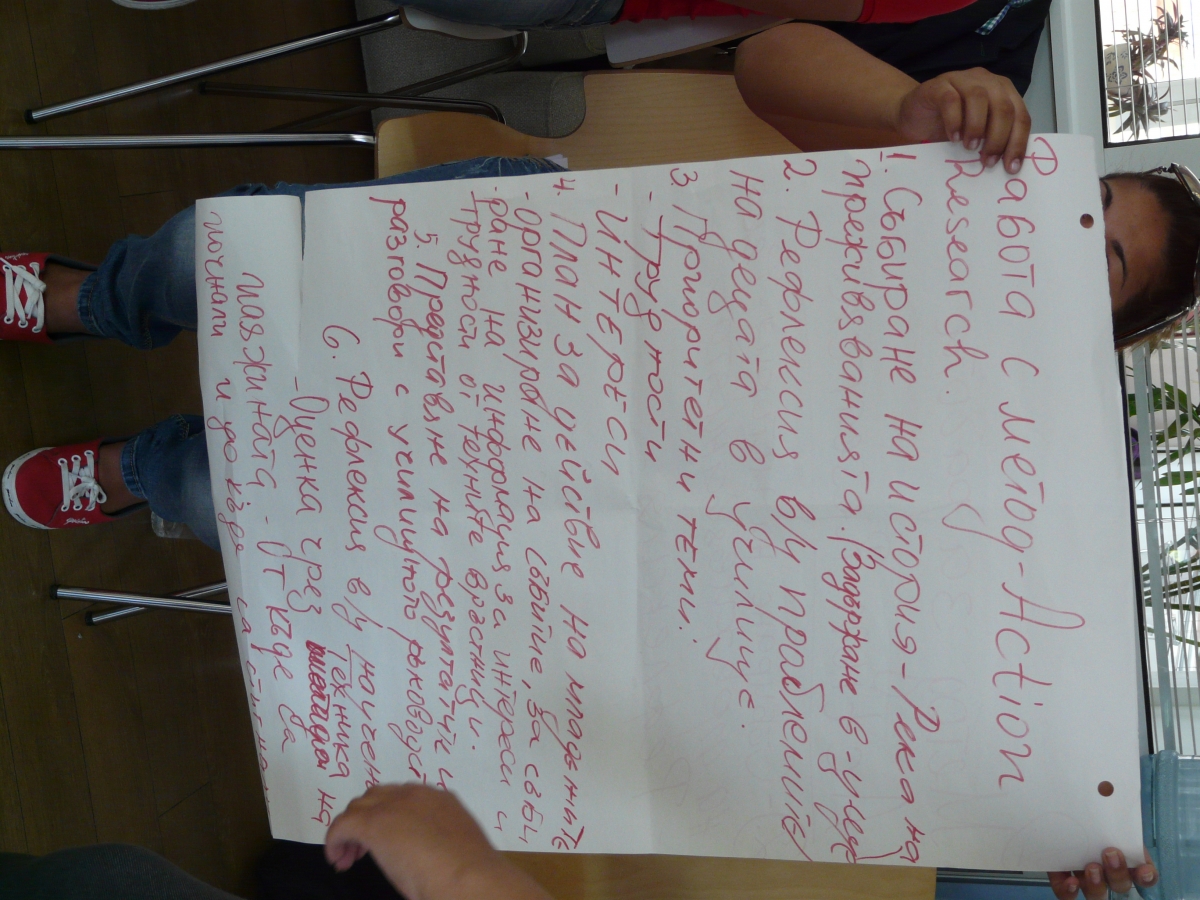 Работа с метод-Action
Research.
1. Събиране на история-Река на
преживяванията. (Задържане в-учил
2. Рефлексия в/у проблемите
на децата в училище.
3. Приоритетни теми:
- трудности
- ИНТЕРЕСИ
4. План за действие на младежите
- организиране на събитие, за съби
ране на информация за интереси и
трудности от техните връстници.
5. Представяне на резултати и
разговори с училищното ръководст
6. Рефлексия в/у научено
- Оценка чрез техника на
пияжината - От къде са
почнали и до къде са стигна